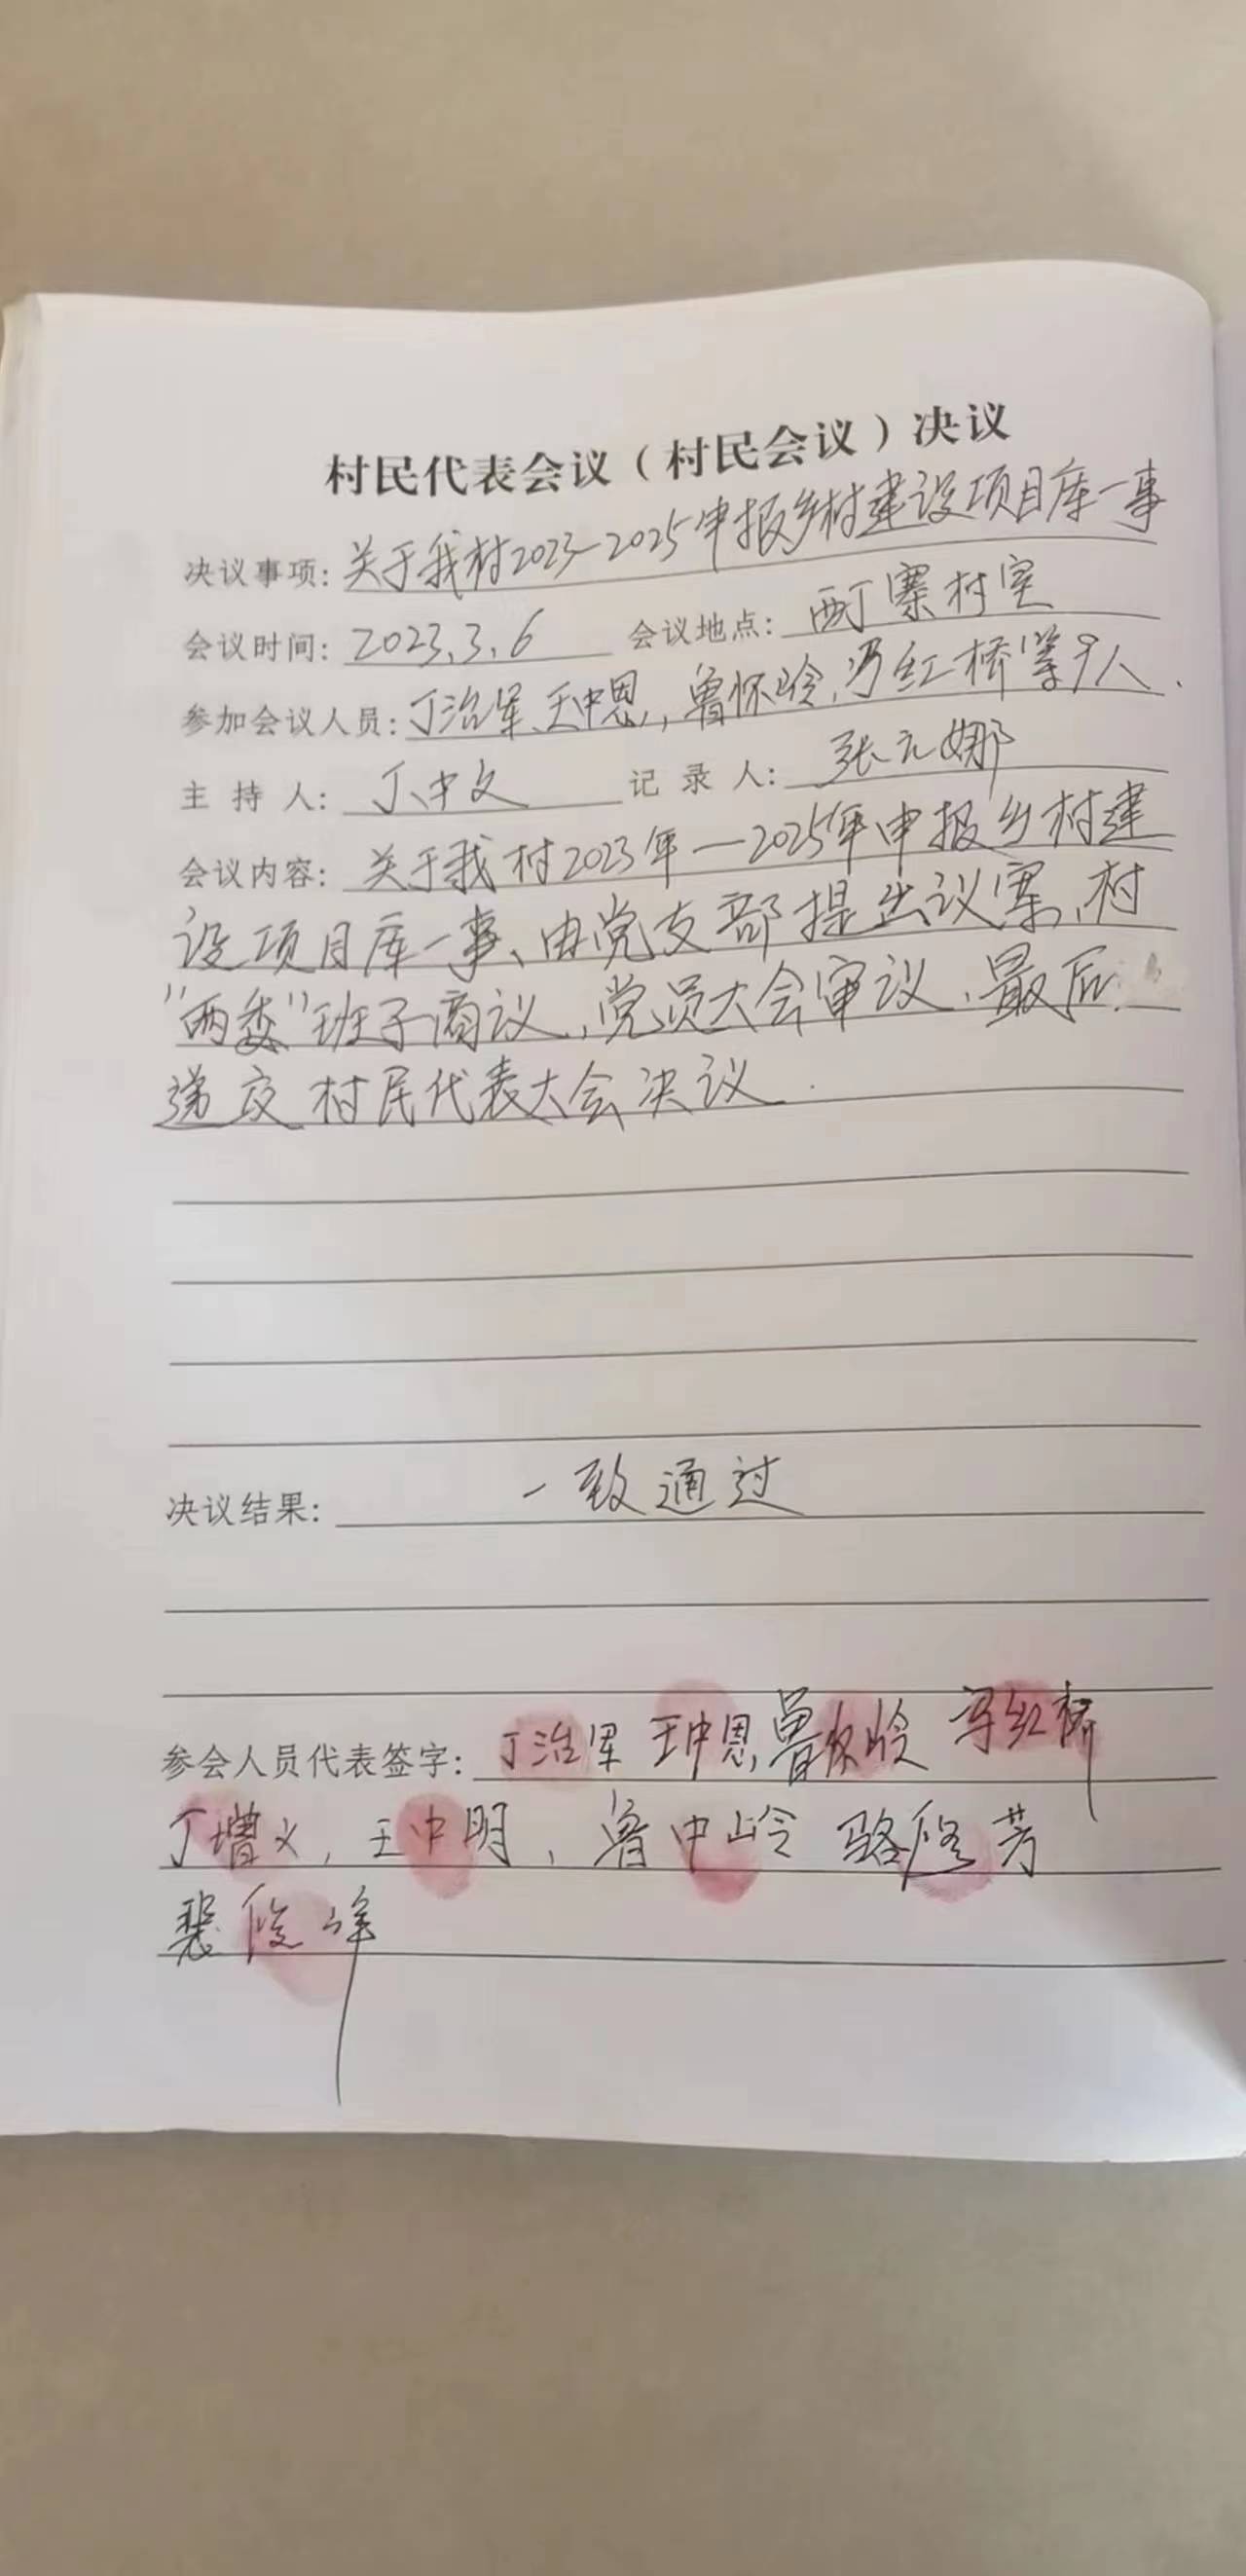 村民代表会议（村民会议）决议
决议事项：关于我村2023—2025申报乡村建设项目库一事
会议时间：2023.3.6 会议地点：西丁寨村室
参加会议人员：丁治军、王中恩，鲁怀岭，冯红桥等9人.
主持人：丁中文 记录人：张元娜
会议内容：关于我村2023年—2025年申报乡村建
设项目库一事、由党支部提出议案，村
"两委"班子商议，党员大会审议、最后
递交村民代表大会决议.
决议结果：一致通过
参会人员代表签字：丁治军 王中恩 鲁怀岭 冯红桥
丁增义，王中明，鲁中岭 骆修芳
裴俊峰